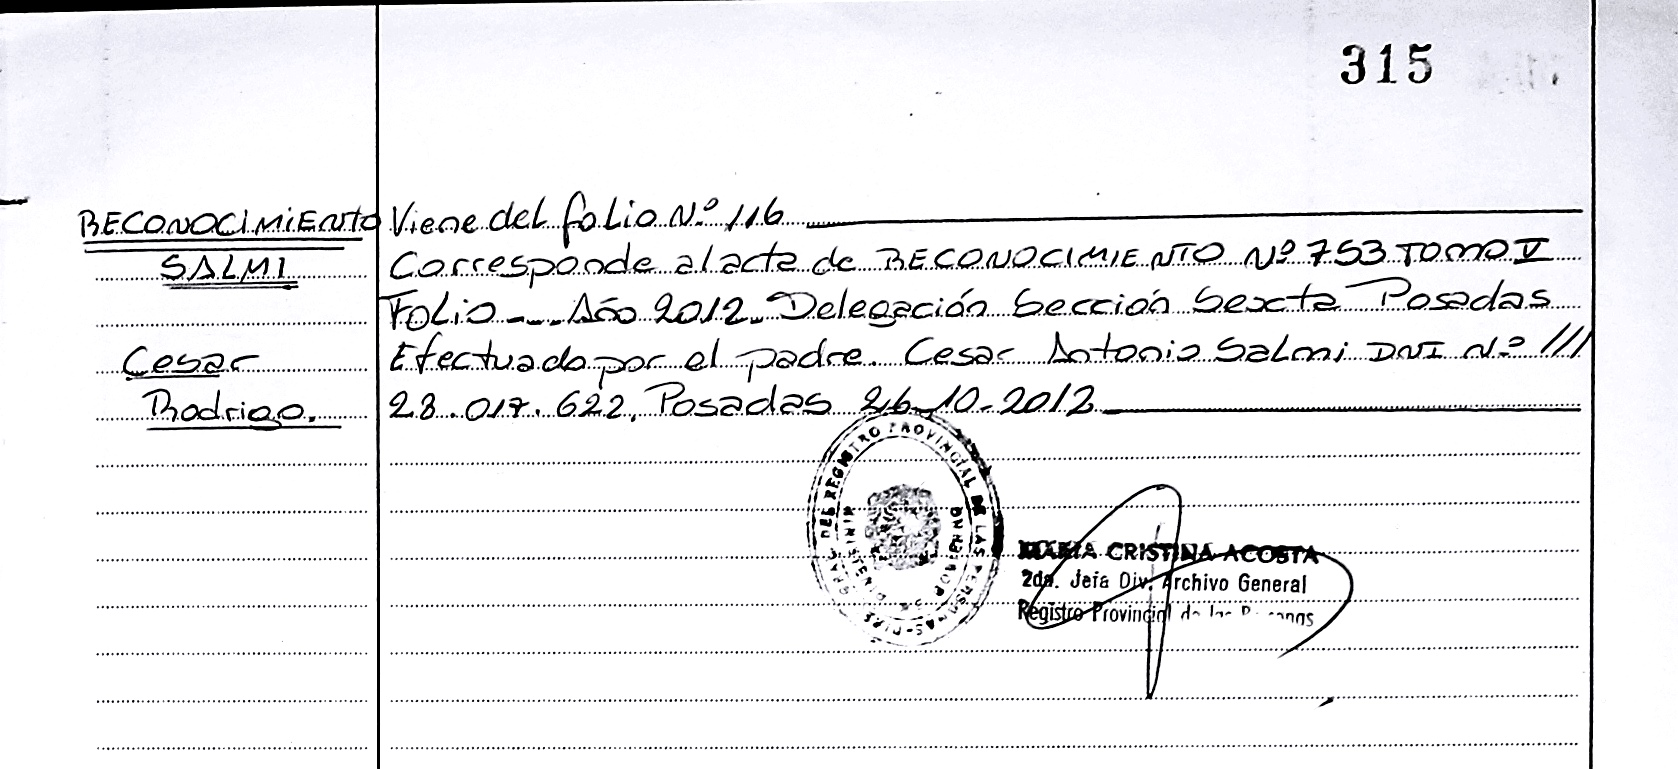 315
RECONOCIMIENTO Viene del folio N.º 116
SALMI Corresponde al acta de RECONOCIMIENTO Nº 753 TOMO V
FOLIO --- Año 2012. Delegación Sección Sexta Posadas
Cesar Efectuado por el padre. Cesar Antonio Salmi DNI N.º ///
Rodrigo. 28.017.622, Posadas 26-10-2012
DEL REGISTRO PROVINCIAL DE LAS PERSONAS
MARIA CRISTINA ACOSTA
2da. Jefa Div. Archivo General
Registro Provincial de las Personas